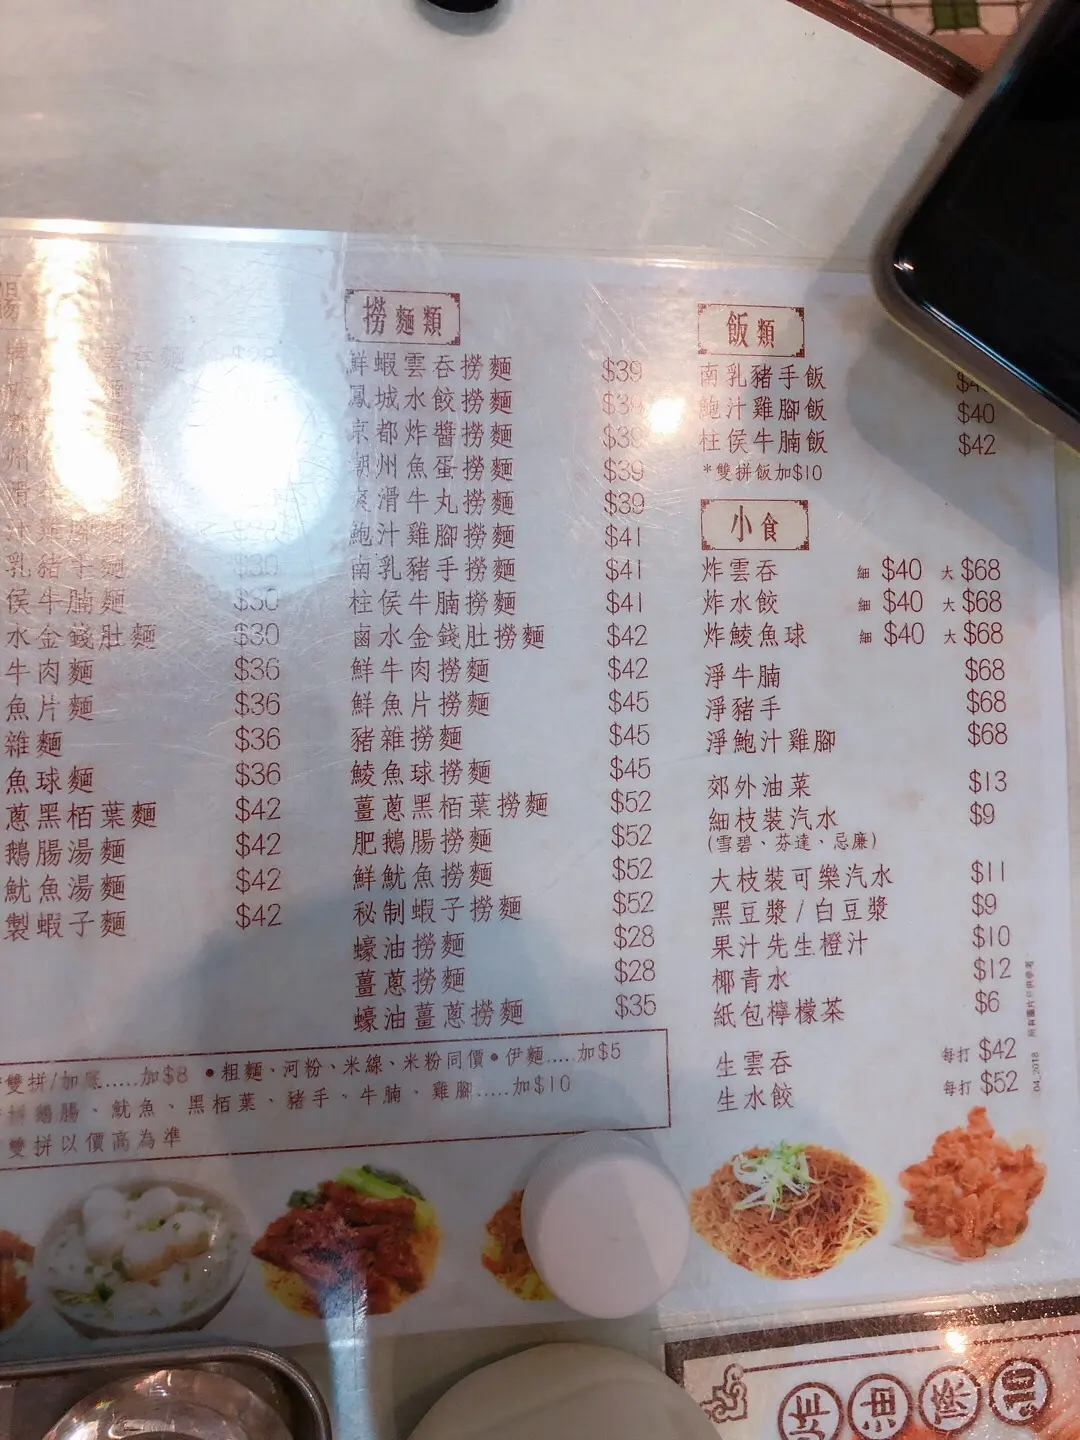 麵 $28
乳豬手麵 $30
侯牛腩麵 $30
水金錢肚麵 $30
牛肉麵 $36
魚片麵 $36
雜麵 $36
魚球麵 $36
蔥黑栢葉麵 $42
鵝腸湯麵 $42
魷魚湯麵 $42
製蝦子麵 $42
撈麵類
鮮蝦雲吞撈麵 $39
鳳城水餃撈麵 $39
京都炸醬撈麵 $39
潮州魚蛋撈麵 $39
爽滑牛丸撈麵 $39
鮑汁雞腳撈麵 $41
南乳豬手撈麵 $41
柱侯牛腩撈麵 $41
鹵水金錢肚撈麵 $42
鮮牛肉撈麵 $42
鮮魚片撈麵 $45
豬雜撈麵 $45
鯪魚球撈麵 $45
薑蔥黑栢葉撈麵 $52
肥鵝腸撈麵 $52
鮮魷魚撈麵 $52
秘制蝦子撈麵 $52
蠔油撈麵 $28
薑蔥撈麵 $28
蠔油薑蔥撈麵 $35
雙拼/加底.....加$8 •粗麵、河粉、米線、米粉同價•伊麵.....加$5
拼鵝腸、魷魚、黑栢葉、豬手、牛腩、雞腳.....加$10
雙拼以價高為準
飯類
南乳豬手飯
鮑汁雞腳飯 $40
柱侯牛腩飯 $42
*雙拼飯加$10
小食
炸雲吞 細 $40 大 $68
炸水餃 細 $40 大 $68
炸鯪魚球 細 $40 大 $68
淨牛腩 $68
淨豬手 $68
淨鮑汁雞腳 $68
郊外油菜 $13
細枝裝汽水 $9
(雪碧、芬達、忌廉)
大枝裝可樂汽水 $11
黑豆漿/白豆漿 $9
果汁先生橙汁 $10
椰青水 $12
紙包檸檬茶 $6
生雲吞 每打 $42
生水餃 每打 $52
所有圖片只供參考
04_2018
炸油條 $10